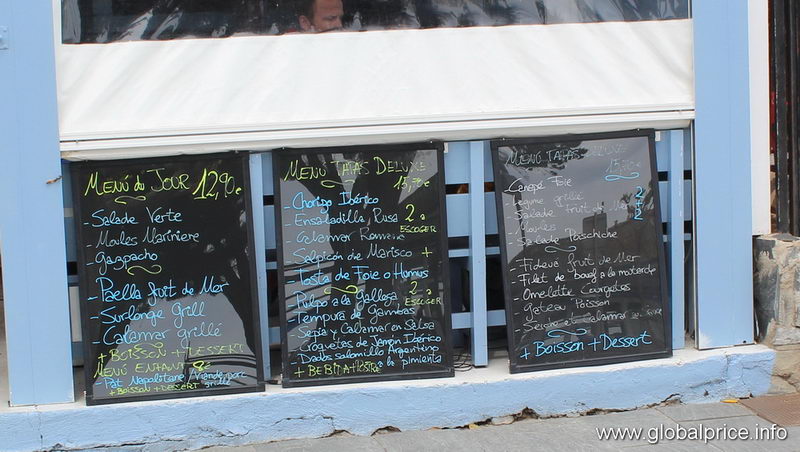 Menú du Jour 12,90€
- Salade Verte
- Moules Mariniere
Gazpacho
- Paella fruit de Mer
- Surlonge Grill
- Calamar grillé
+ BOISSON + DESSERT
MENÚ ENFANT
- Pat Napolitane / Viande porc grillé
+ BOISSON + DESSERT
MENÚ TAPAS DELUXE
15,70€
- Chorizo Ibérico
- Ensaladilla Rusa 2 a
ESCOGER
- Calamar Romana
- Salpicón de Marisco +
- Tosta de Foie o Humus
- Pulpo a la Gallega 2 a
ESCOGER
- Tempura de Gambas
- Sepia y Calamar en Salsa
- Croquetas de Jamón Ibérico
- Dados solomillo Argentino
a la pimienta
+ BEBITA + POSTRE
MENÚ TAPAS DELUXE
15,70€
- Canapé Foie
- Legume grillé
- Salade fruit de Mer
- Moules
- Salade
- Fideua fruit de Mer
- Filet de boeuf a la mutarde
- Omelette Courgettes
- Gateau Poisson
- calamar
+ Boisson + Dessert
www.globalprice.info